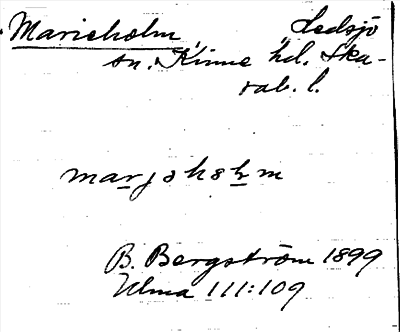 Marieholm, Ledsjö
sn. Kinne hd. Ska-
rab. l.
marjəhəɫm
B. Bergström 1899
Ulma 111:109